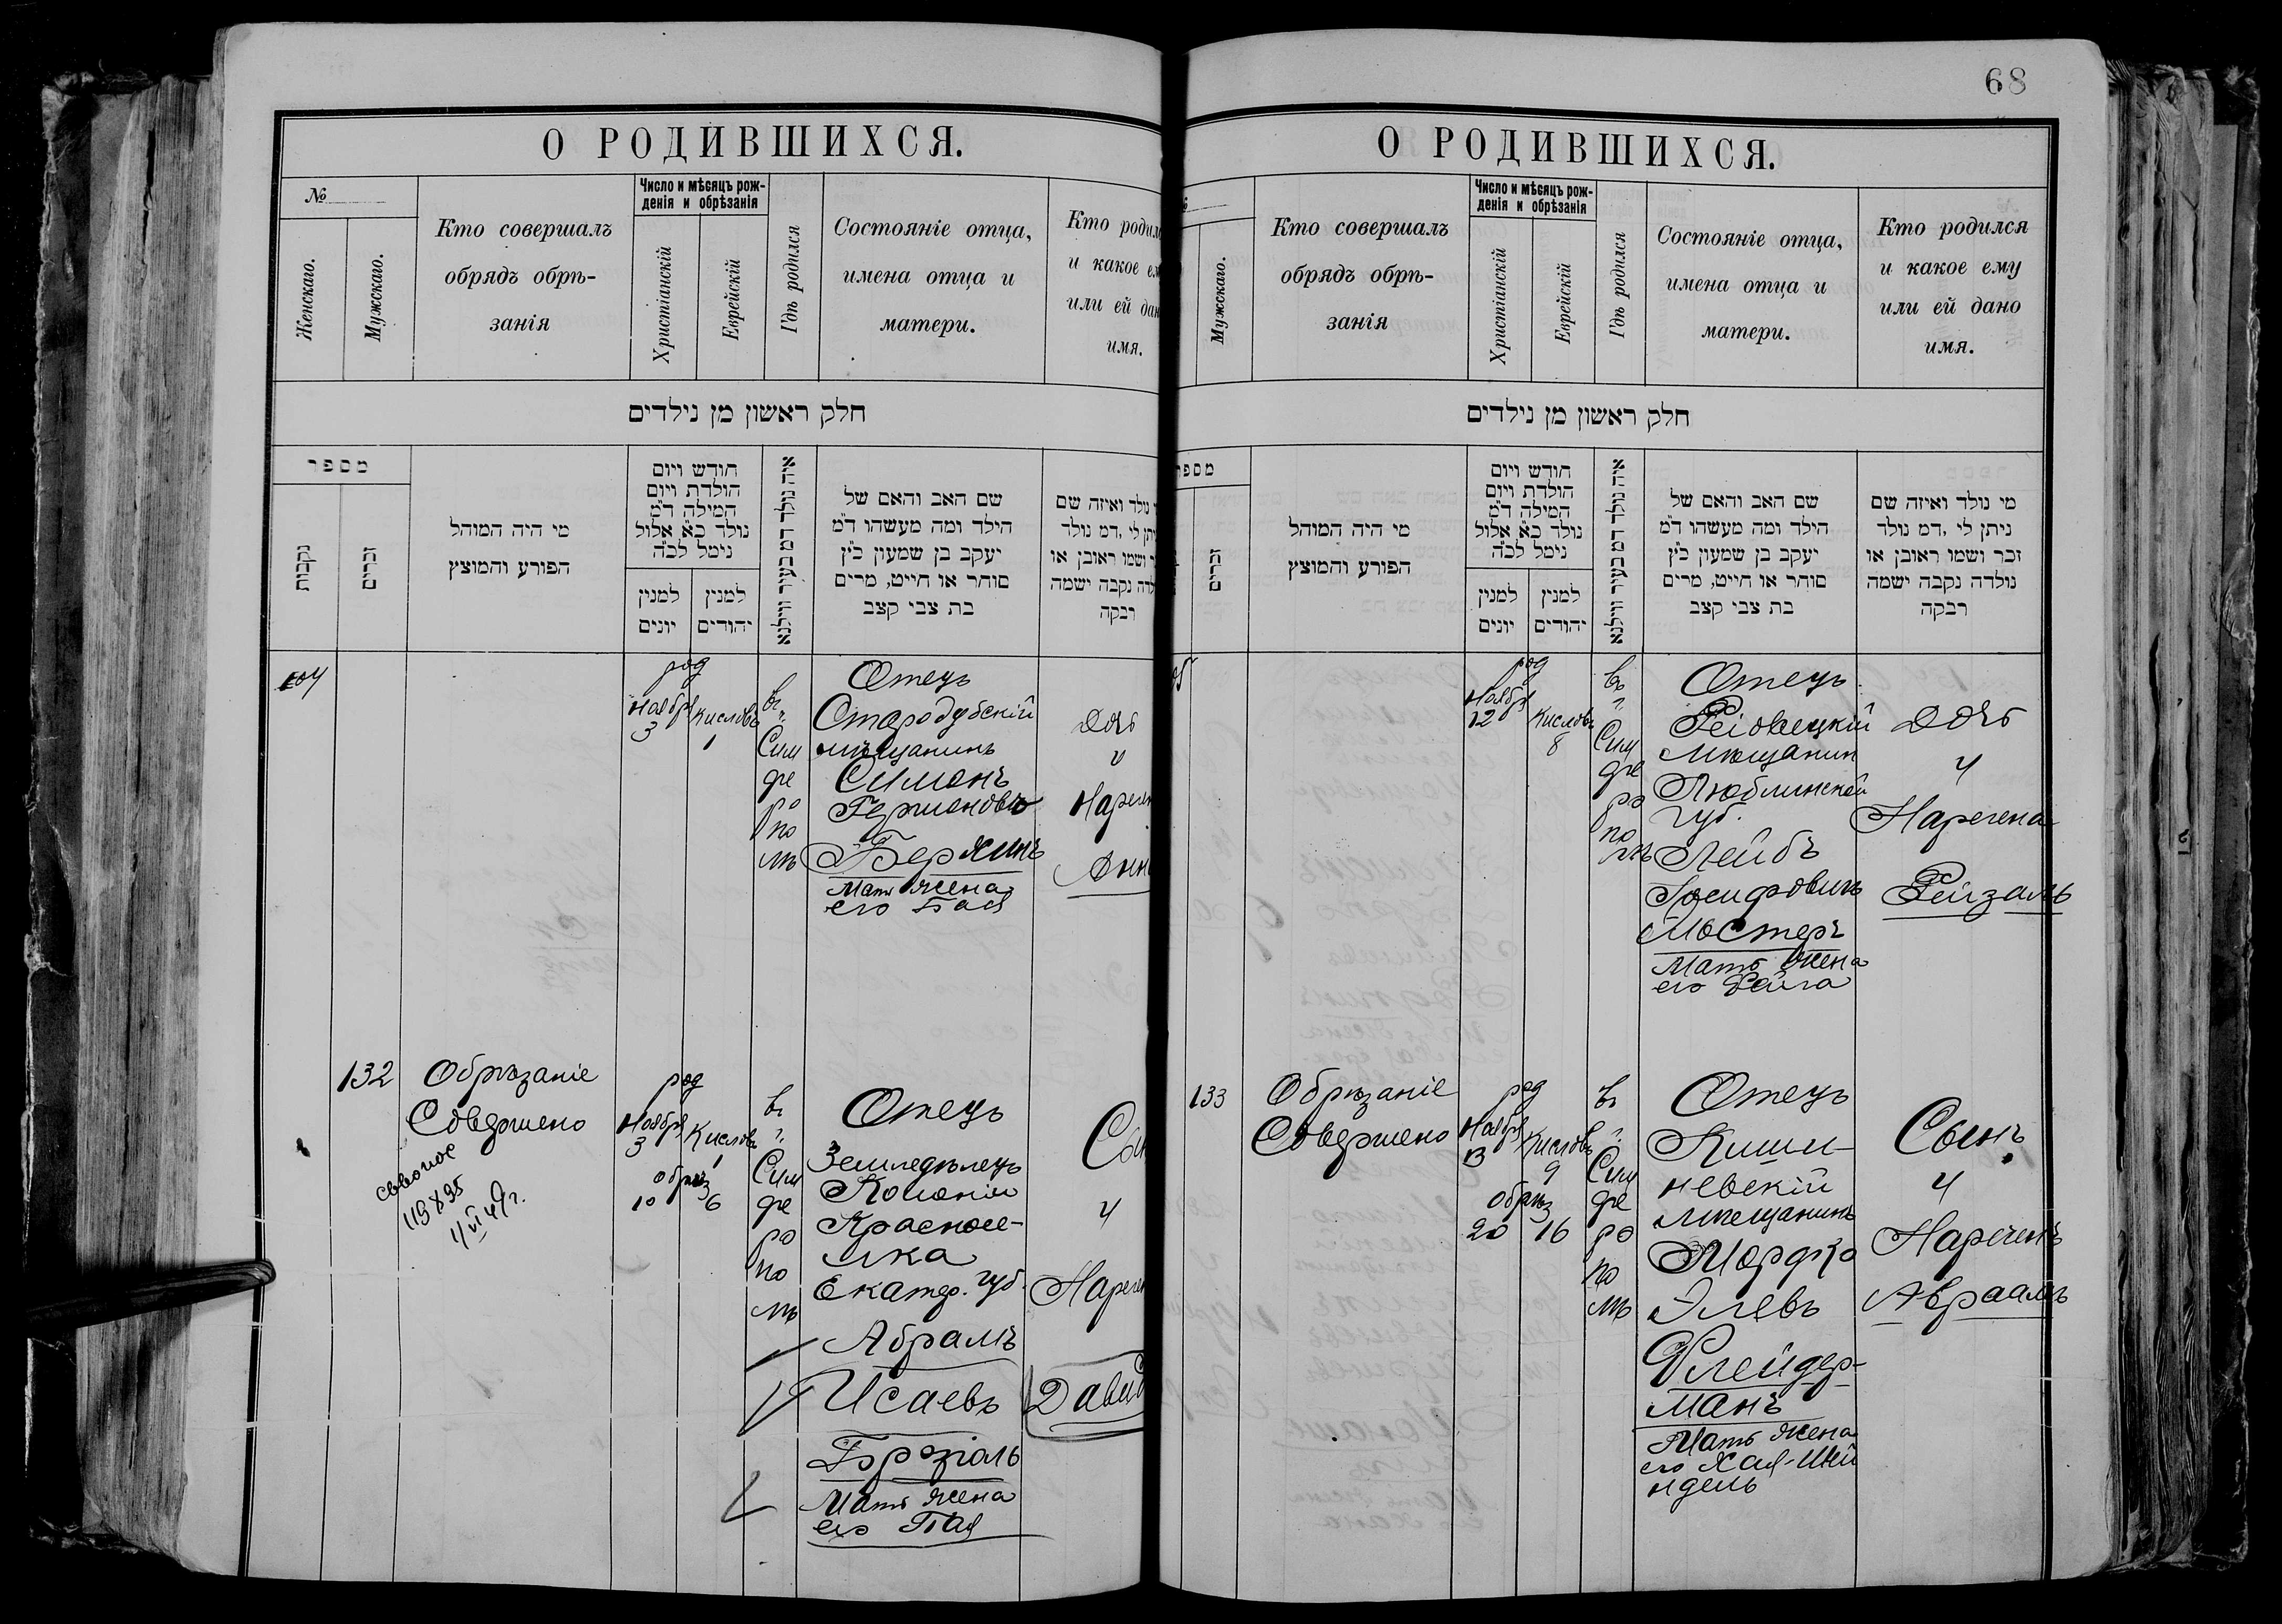 68
О РОДИВШИХСЯ.
№
Женскаго.
Мужскаго.
Кто совершалъ
обрядъ обрѣ-
занія
Число и мѣсяцъ рож-
денія и обрѣзанія
Христіанскій
Еврейскій
Гдѣ родился
Состояніе отца,
имена отца и
матери.
Кто родил
и какое ем
или ей дан
имя.
חלק ראשון מן נילדים
מספר
נקבות
זכרים
מי היה המוהל
הפורע והמוצץ
חודש ויום
הולדת ויום
המילה ד״מ
נולד כא אלול
נימל לכ״ה
למנין
יונים
למנין
יהודים
איה נולד דמ בעיר ווילנא
שם האב והאם של
הילד ומה מעשהו ד״מ
יעקב בן שמעון כ״ץ
סוחר או חייט, מרים
בת צבי קצב
נולד ואיזה שם
יתן לי, דמ נולד
ושמו ראובן או
לדה נקבה ישמה
רבקה
104
род
Ноября
3
Кислова
1
въ
г.
Сим
фе
ро
по
лѣ
Отецъ
Стародубскій
мѣщанинъ
Симонъ
Германовъ
Берхинъ
Мать жена
его Бася
Дочь
и
Наречен
Анн
132
Обрѣзаніе
Совершено
свво пос
119895
4/VI 49 г.
род
Ноября
3
Кислова
1
обрѣз
10 6
въ
г.
Сим
фе
ро
по
лѣ
Отецъ
Земледѣлецъ
Колоніи
Красносе-
лка
Екатер. губ.
Абрамъ
Исаевъ
Мать жена
его
Сын
и
Наречен
Давид
О РОДИВШИХСЯ.
Мужскаго.
Кто совершалъ
обрядъ обрѣ-
занія
Число и мѣсяцъ рож-
денія и обрѣзанія
Христіанскій
Еврейскій
Гдѣ родился
Состояніе отца,
имена отца и
матери.
Кто родился
и какое ему
или ей дано
имя.
חלק ראשון מן נילדים
מספר
זכרים
מי היה המוהל
הפורע והמוצץ
חודש ויום
הולדת ויום
המילה ד״מ
נולד כא אלול
נימל לכ״ה
למנין
יונים
למנין
יהודים
איה נולד דמ בעיר ווילנא
שם האב והאם של
הילד ומה מעשהו ד״מ
יעקב בן שמעון כ״ץ
סוחר או חייט, מרים
בת צבי קצב
מי נולד ואיזה שם
ניתן לי, דמ נולד
זכר ושמו ראובן או
נולדה נקבה ישמה
רבקה
род
Ноября
12
Кислова
8
въ
г.
Сим
фе
ро
по
лѣ
Отецъ
Рейовецкій
Мѣщанин
Люблинской
губ.
Лейбъ
Іосифовичъ
Мостеръ
Мать жена
его Фейга
Дочь
и
Наречена
Рейзаль
133
Обрѣзаніе
Совершено
род
Ноября
13
Кислова
9
обрѣз
20 16
въ
г.
Сим
фе
ро
по
лѣ
Отецъ
Киши-
невскій
Мѣщанинъ
Мордко
Элевъ
Флейдер-
манъ
Мать жена
его Хая-Шей
ндель
Сынъ
и
Нареченъ
Авраамъ